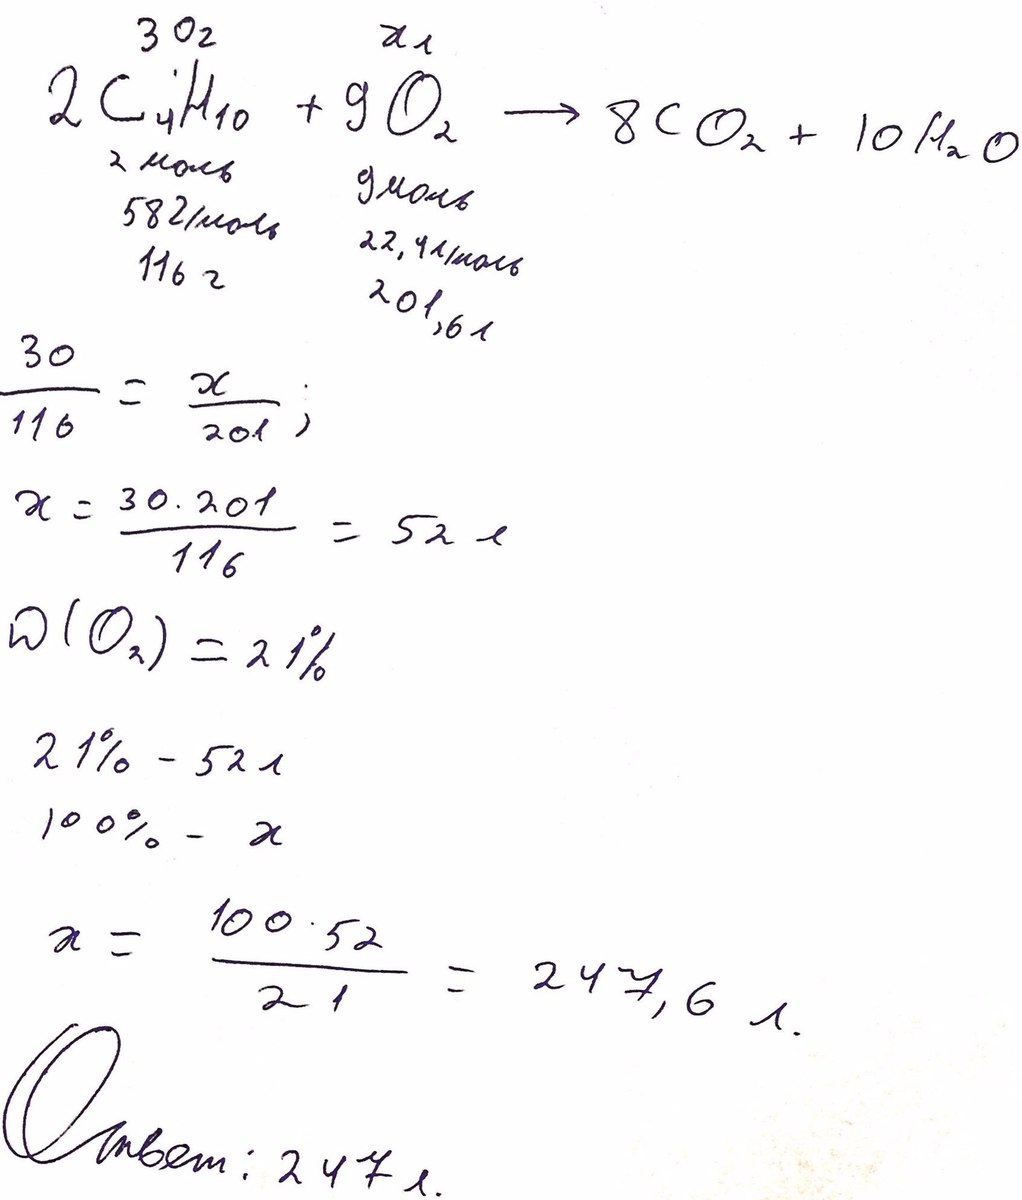 30г xл
2C₄H₁₀ + 9O₂ → 8CO₂ + 10H₂O
2 моль 9 моль
58г/моль 22,4л/моль
116 г 201,6 л
30/116 = x/201;
x = 30·201/116 = 52 л
ω(O₂) = 21%
21% - 52 л
100% - x
x = 100·52/21 = 247,6 л.
Ответ: 247 л.